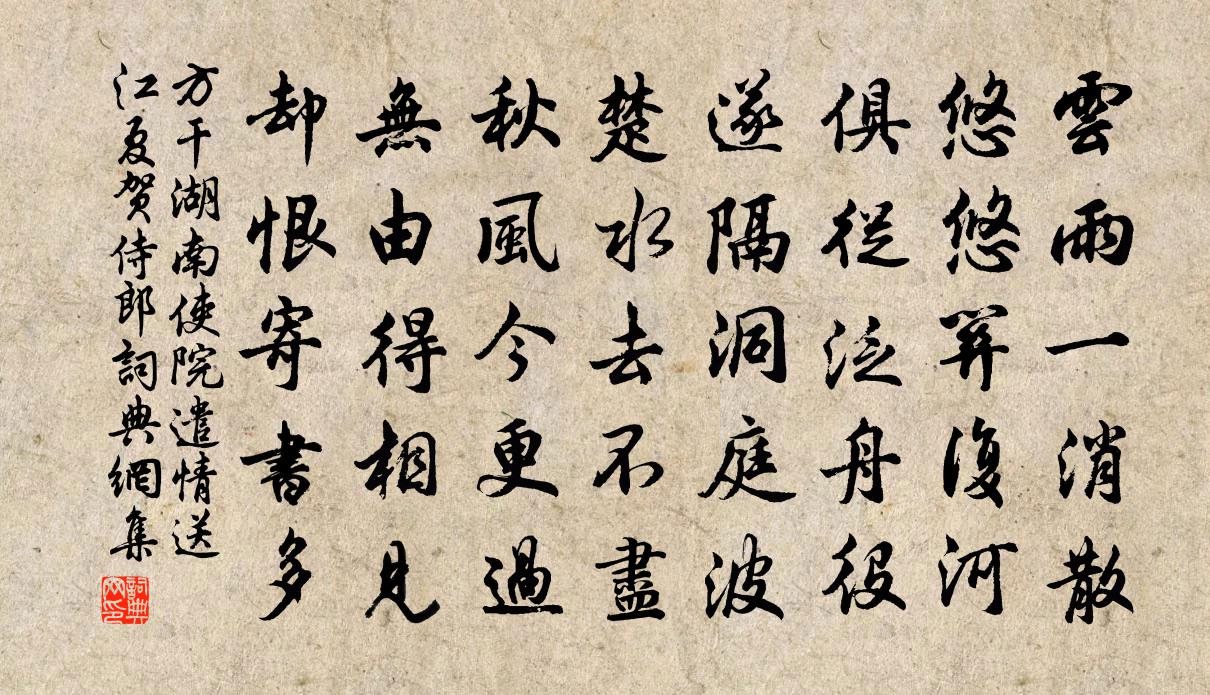 雲雨一消散
悠悠關復河
俱從泛舟役
遂隔洞庭波
楚水去不盡
秋風今更過
無由得相見
却恨寄書多
方干湖南使院遣情送
江夏贺侍郎詞典網集
詞典网印